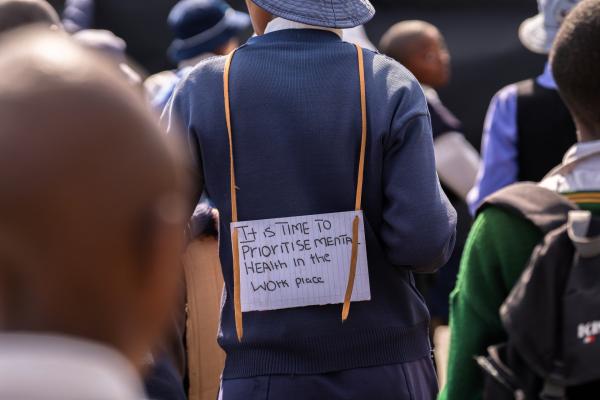 It is TIME TO
PRIORITISE MENTAL
HEALTH in the
WORK place